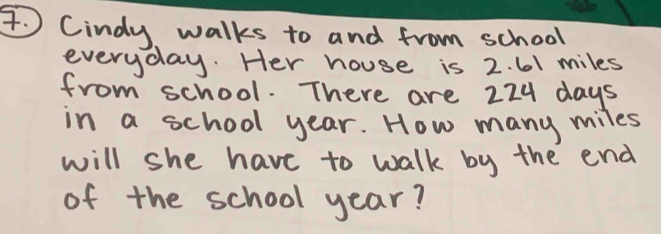 7.) Cindy walks to and from school
everyday. Her house is 2.61 miles
from school. There are 224 days
in a school year. How many miles
will she have to walk by the end
of the school year?